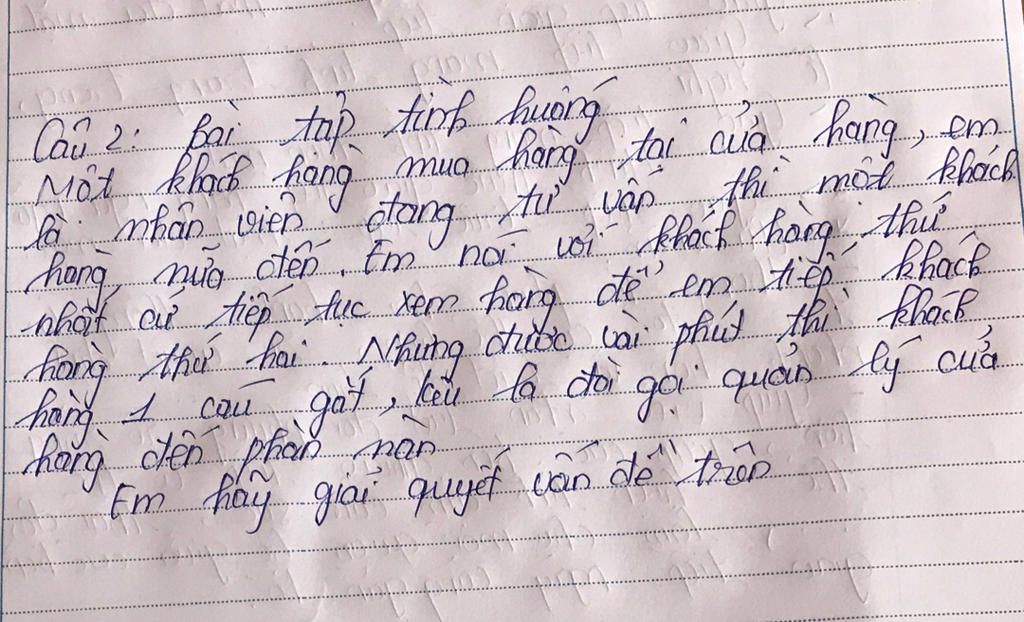 Câu 2: Bài tập tình huống
Một khách hàng mua hàng tại cửa hàng, em
là nhân viên đang tư vấn thì một khách
hàng nữa đến. Em nói với khách hàng thứ
nhất cứ tiếp tục xem hàng để em tiếp khách
hàng thứ hai. Nhưng được vài phút thì khách
hàng 1 cáu gắt, kêu la đòi gọi quản lý cửa
hàng đến phàn nàn
Em hãy giải quyết vấn đề trên